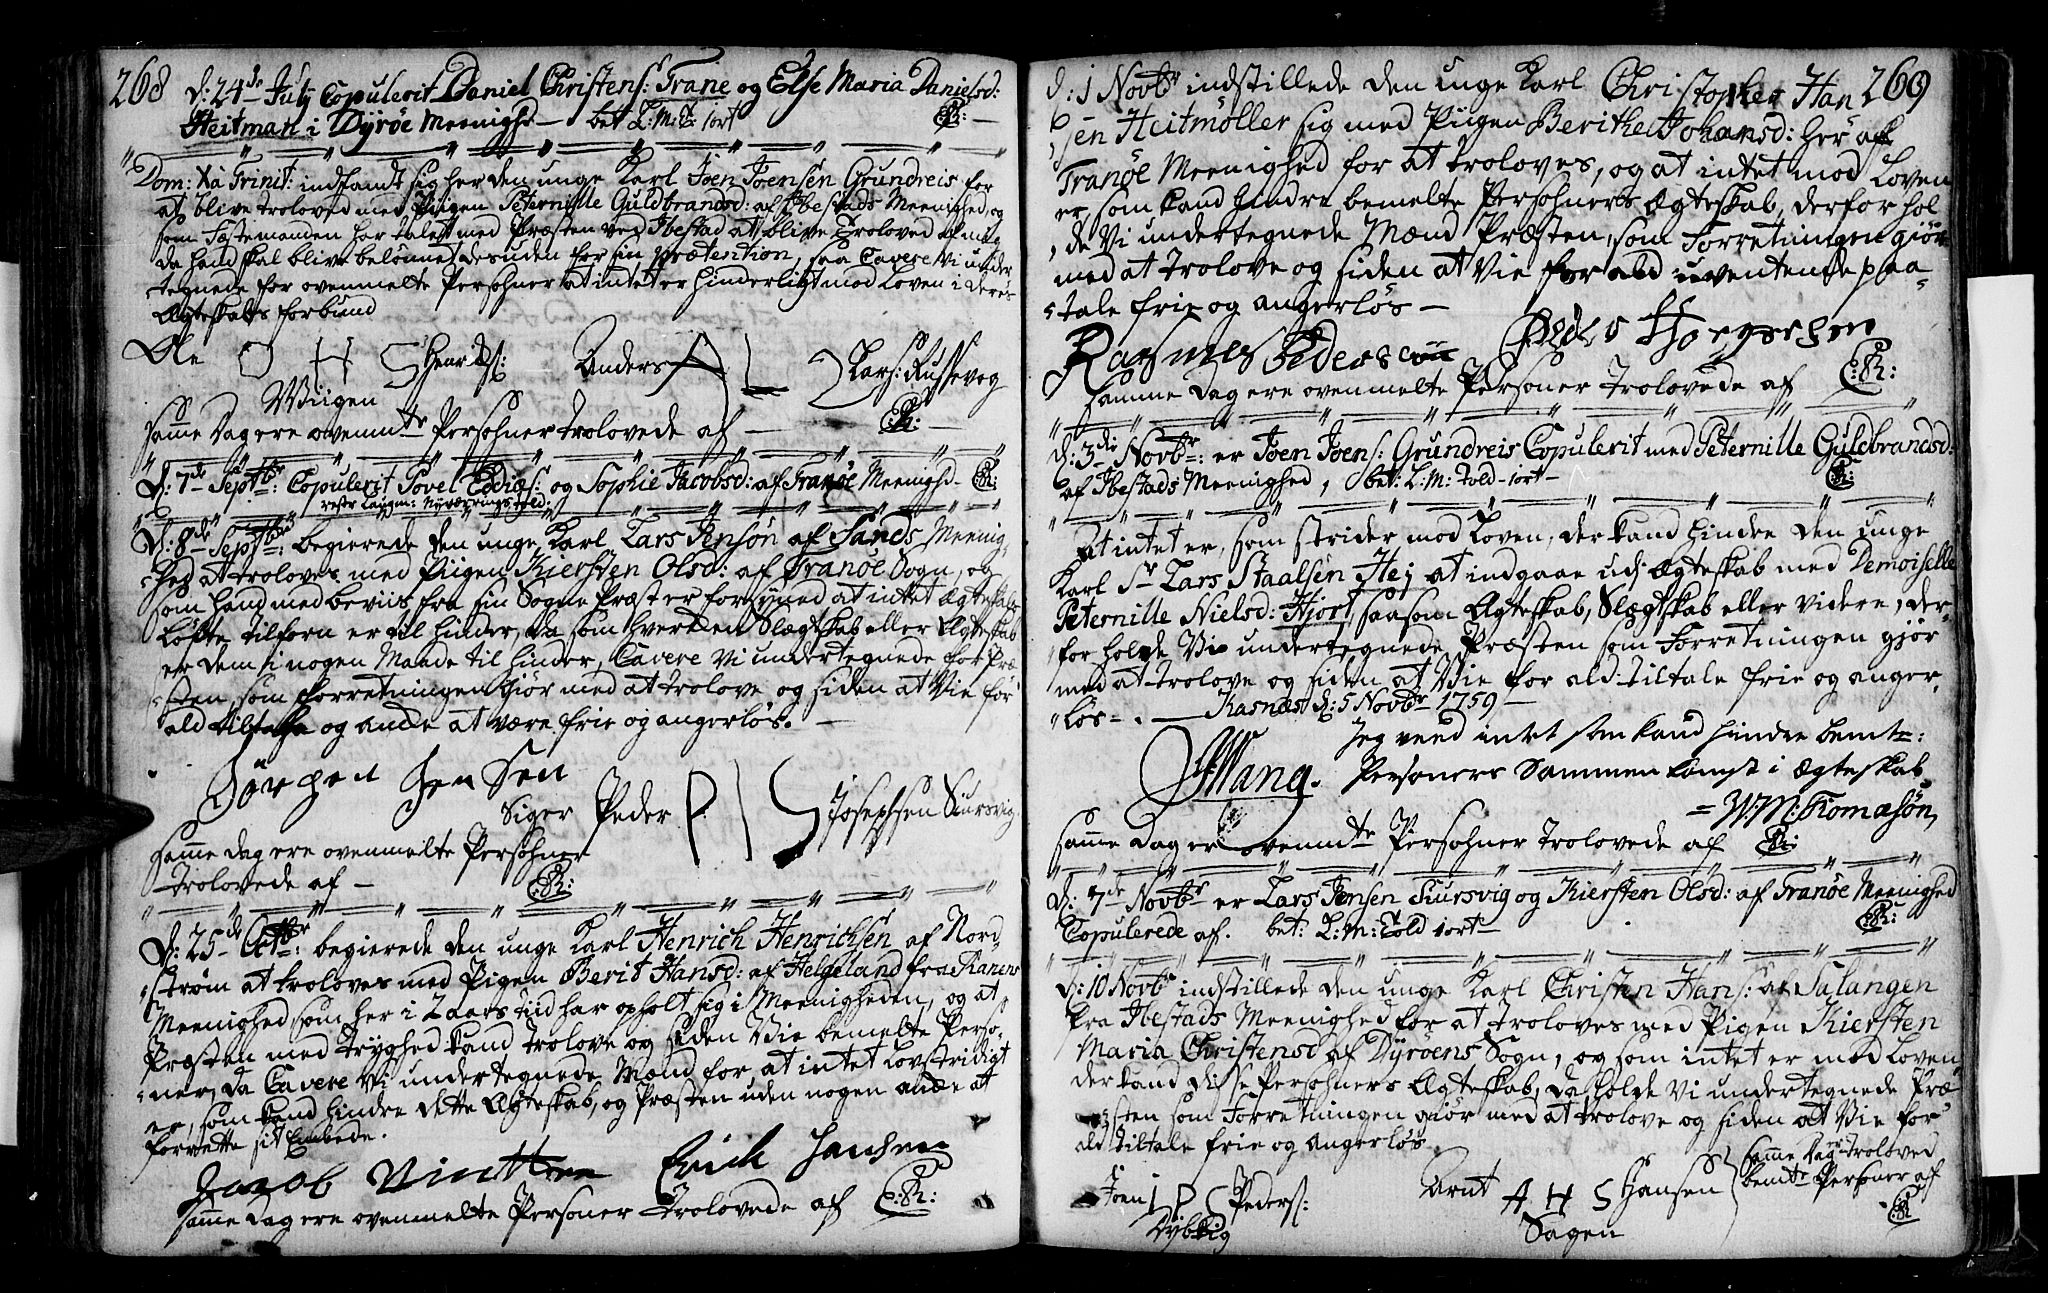 268
d: 24de July Copulerit Daniel Christens: Trane og Else Maria Danielsd:
Heitman i Dyrøe Meenighd — bet L: M: T: 1 ort
Dom: X à Trinit: indfandt sig her den unge Karl Joen Joensen Grundreis for
at blive troloved med Piigen Peternille Guldbrandsd: af Ibestads Meenighed, og
som Fæstemanden har talet med Præsten ved Ibestad at blive Troloved af mig
da hand skal blive belønnet desuden for sin prætention, saa Cavere Vi under
tegnede for ovenmelte Persohner at intet er hinderligt mod Loven i deres
Ægteskabs forbund
Ole O H S Henrichs: Anders A L Lars: Russevog
Wiigen
Samme Dag ere ovenmte Persohner trolovede af —
D: 7de Septbr: Copulerit Povel and Sophie Jacobsd: af Tranøe Meenighd —
D: 8de Septbr: begierede den unge Karl Lars Jensøn af Sands Meenig
hed at troloves med Piigen Kiersten Olsd: af Tranøe Sogn, og
som hand med beviis fra sin Sogne Præst er forsyned at intet Ægteskabs
Løfte tilforn er til hinder, da som hverken Slægtskab eller Ægteskab
er dem i nogen Maade til hinder, Cavere Vi undertegnede for Præ
sten, som Forretningen giør med at trolove og siden at Vie for
ald tiltale og ande at være frie og angerløs. —
Jørgen Jensen
Siger Peder P I S Josephsen Siursvig
Samme dag ere ovenmelte Persohner
trolovede af —
D: 25de Octbr: begierede den unge Karl Henrich Henrichsen af Nord
strøm at troloves med Pigen Berit Hansd: af Helgeland fra Ranens
Meenighed, som her i 2 aars tiid har opholt sig i Meenigheden, og at
Præsten med tryghed kand trolove og siden Vie bemelte Perso
ner, da Cavere Vi undertegnede Mænd for at intet Lovstridigt
er, som kand hindre dette Ægteskab, og Præsten uden nogen ande at
forrette sit Embede.
Jacob Winther Erich Hansen
Samme dag ere ovenmelte Personer Trolovede af
269
d: 1 Novbr indstillede den unge Karl Christopher Han
sen Heitmøller sig med Piigen Berithe Johansd: her af
Tranøe Meenighed for at troloves, og at intet mod Loven
er, som kand hindre bemelte Persohners Ægteskab, derfor hol
de Vi undertegnede Mænd Præsten, som Forretningen giør
med at trolove og siden at Vie for ald uventende paa
tale frie og angerløs —
Rasmus Pedersen Peder Jørgensen
Samme Dag ere ovenmelte Personer Trolovede af
d: 3de Novbr: er Joen Joens: Grundreis Copulerit med Peternille Guldbrandsd:
af Ibestads Meenighed, bet: L: M: Told 1 ort —
At intet er, som strider mod Loven, der kand hindre den unge
Karl Sr Lars Staalsen Hej at indgaae udi Ægteskab med Demoiselle
Peternille Nielsd: Hjort, saasom Ægteskab, Slægtskab eller videre, der
for holde Vi undertegnede Præsten som Forretningen gjør
med at trolove og siden at Vie for ald tiltale frie og anger
løs — . — Kasnæs d: 5 Novbr 1759 —
Jeg veed intet som kand hindre bemte:
Wang. Personers Sammenkomst i Ægteskab
= W: M: Thomasøn,
Samme Dag er ovenmte Persohner Trolovede af
d: 7de Novbr er Lars Jensen Siursvig og Kiersten Olsd: af Tranøe Meenighed
Copulerede af. bet: L: M: Told 1 ort —
d: 10 Novbr indstillede den unge Karl Christen Hans: af Salangen
fra Ibestads Meenighed for at troloves med Pigen Kiersten
Maria Christensd af Dyrøens Sogn, og som intet er mod Loven
der kand disse Persohners Ægteskab, da holde Vi undertegnede Præ
sten som Forretningen giør med at trolove og siden at Vie for
ald tiltale frie og angerløs
Joen I P S Peders: Arnt A H S Hansen
Dybvig Sagen
Samme Dag er Troloved
bemte Personer af